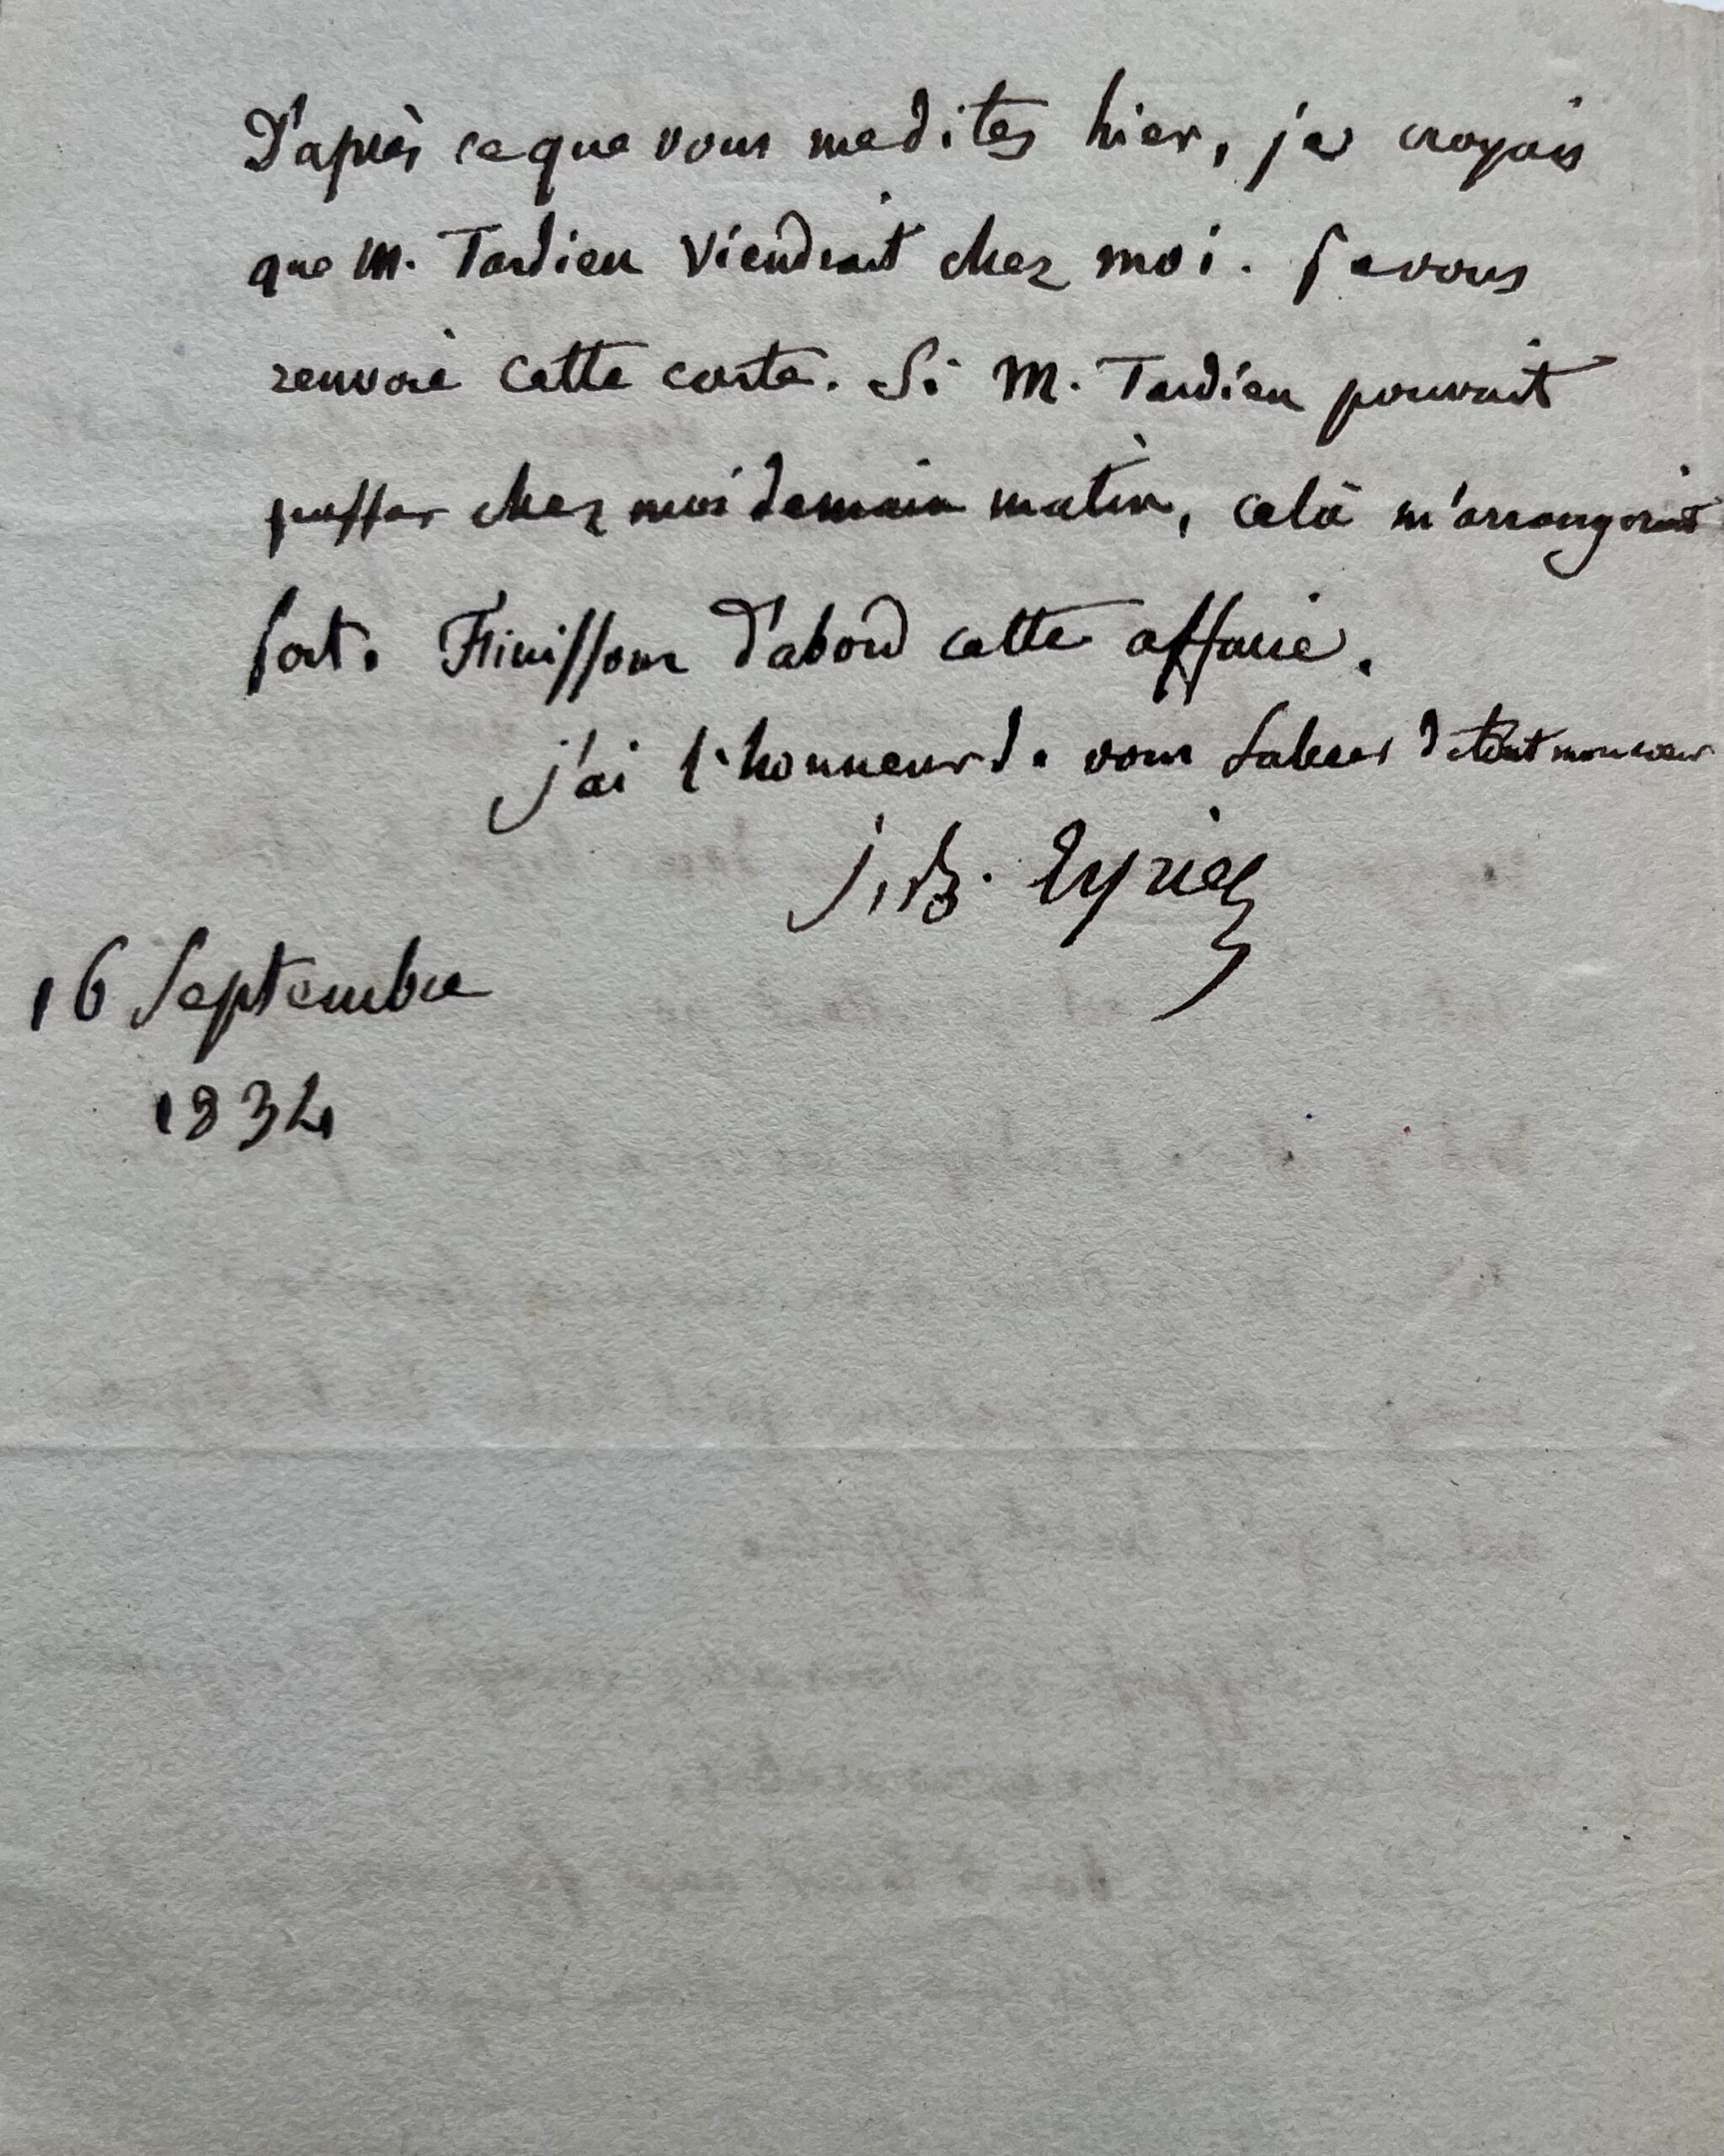 D'après ce que vous me dites hier, je croyais
que M. Tardieu viendrait chez moi. Je vous
renvoie cette carte. Si M. Tardieu pouvait
passer chez moi demain matin, celà m'arrangerait
fort. Finissons d'abord cette affaire.
j'ai l'honneur de vous saluer de tout mon cœur
J. B. Eyriès
16 Septembre
1834